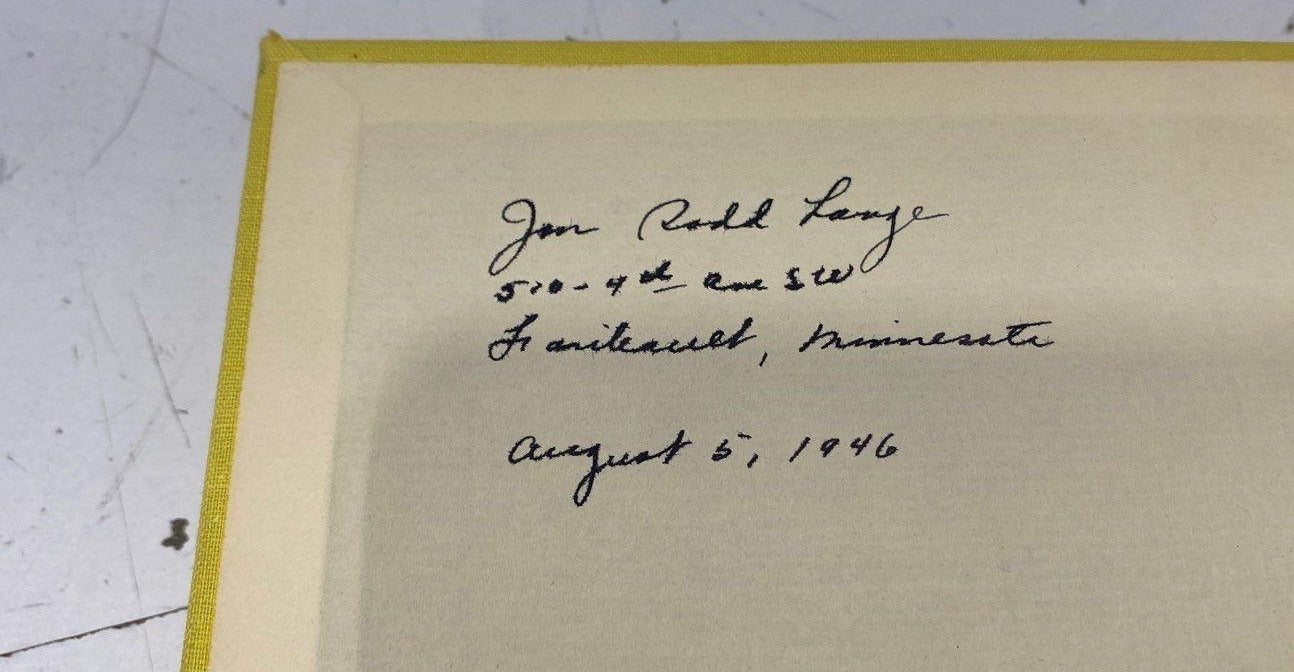 Jon Rodd Lange
510 - 4th Ave SW
Faribault, Minnesota
August 5, 1946